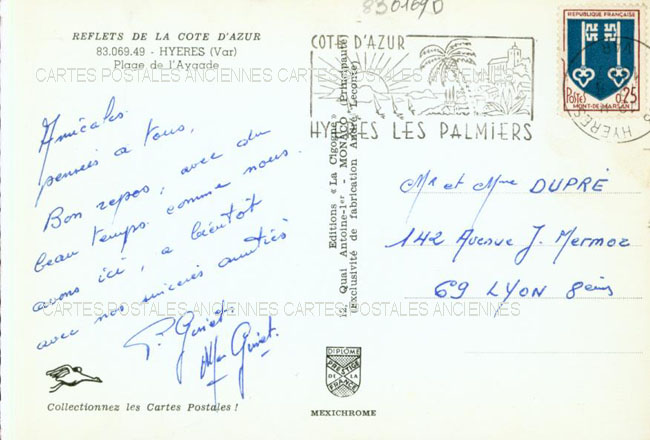 83069D
REFLETS DE LA COTE D'AZUR
83.069.49 - HYERES (Var)
Plage de l'Ayguade
CARTES POSTALES ANCIENNES CARTES POSTALES ANCIENNES CARTES POSTALES ANCIENNES
Amicales
pensées a tous,
Bon repos, avec du
beau temps comme nous
avons ici, a bientôt
avec nos sincères amitiés
P. Guiet.
Guiet.
COTE D'AZUR
HYERES LES PALMIERS
REPUBLIQUE FRANÇAISE
POSTES
0,25
MONT-DE-MARSAN
HYERES
Editions « La Cigogne »
12, Quai Antoine-1er - MONACO (Principauté)
(Exclusivité de fabrication André Leconte)
Mr et Mme DUPRÉ
142 Avenue J. Mermoz
69 LYON 8ème
CARTES POSTALES ANCIENNES CARTES POSTALES ANCIENNES CARTES POSTALES ANCIENNES
Collectionnez les Cartes Postales !
DIPLOME
PRESTIGE
DE LA
FRANCE
MEXICHROME